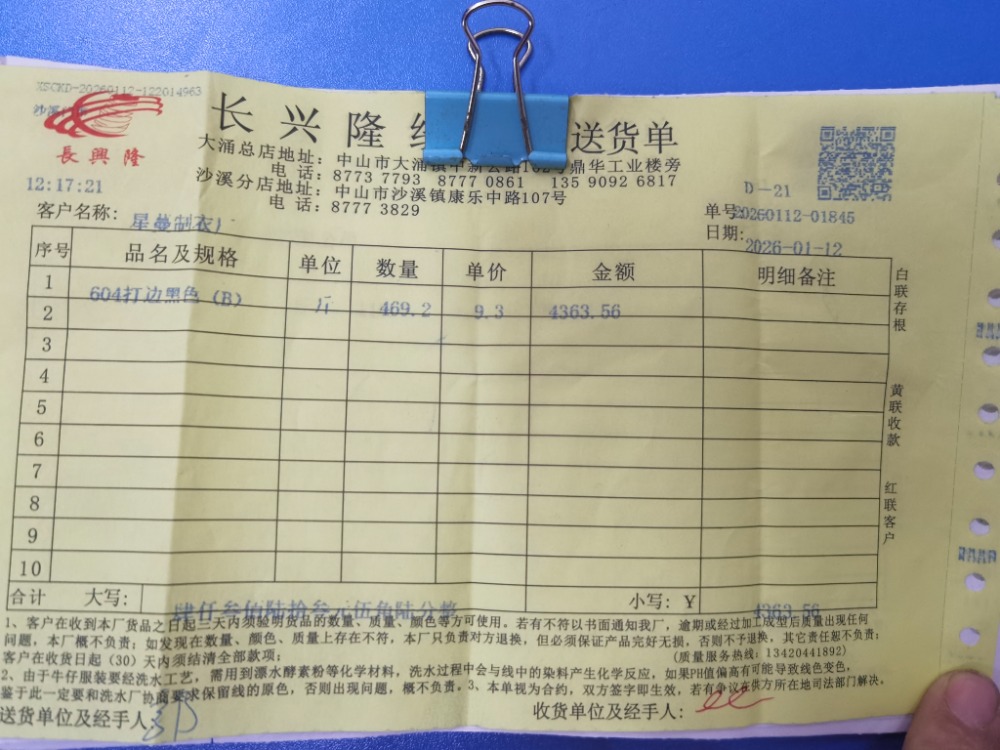 XSCKD-20260112-122014963
長興隆
长兴隆 送货单
大涌总店地址:中山市大涌镇中新公路108号鼎华工业楼旁
电话:8773 7793 8777 0861 135 9092 6817
沙溪分店地址:中山市沙溪镇康乐中路107号
电话:8777 3829
12:17:21
D-21
单号:20260112-01845
客户名称:星蔓制衣
日期:2026-01-12
序号 品名及规格 单位 数量 单价 金额 明细备注
1 604打边黑色(B) 斤 469.2 9.3 4363.56
2
3
4
5
6
7
8
9
10
合计 大写:肆仟叁佰陆拾叁元伍角陆分整 小写:¥ 4363.56
白联存根
黄联收款
红联客户
1、客户在收到本厂货品之日起三天内须验明货品的数量、质量、颜色等方可使用。若有不符以书面通知我厂,逾期或经过加工成型后质量出现任何
问题,本厂概不负责;如发现在数量、颜色、质量上存在不符,本厂只负责对方退换,但必须保证产品完好无损,否则不予退换,其它责任恕不负责;
客户在收货日起(30)天内须结清全部款项; (质量服务热线:13420441892)
2、由于牛仔服装要经洗水工艺,需用到漂水酵素粉等化学材料,洗水过程中会与线中的染料产生化学反应,如果PH值偏高有可能导致线色变色,
鉴于此一定要和洗水厂协商要求保留线的原色,否则出现问题,概不负责。3、本单视为合约,双方签字即生效,若有争议在供方所在地司法部门解决。
送货单位及经手人 收货单位及经手人: